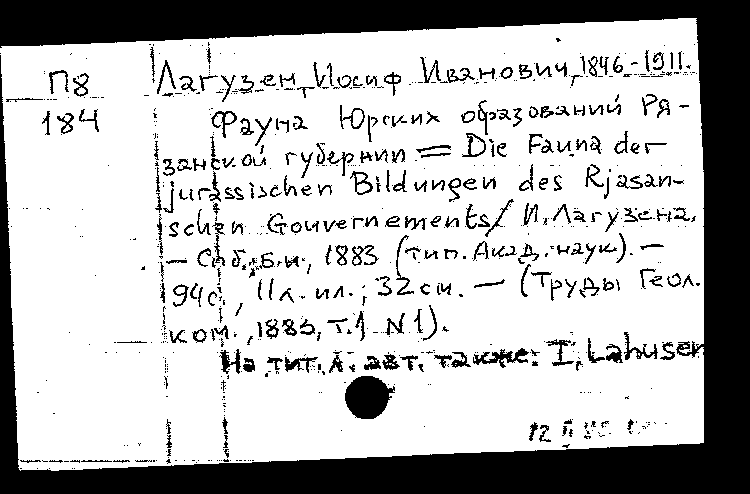 П8
184
Лагузен, Иосиф Иванович, 1846-1911.
Фауна Юрских образований Ря-
занской губернии = Die Fauna der
jurassischen Bildungen des Rjasan-
schen Gouvernements / И. Лагузена.
— Спб.: Б.и., 1883 (тип. Акад. наук). —
94с., 11л. ил.; 32см. — (Труды Геол.
ком., 1883, т.1 N1).
На тит. л. авт. также: I. Lahusen